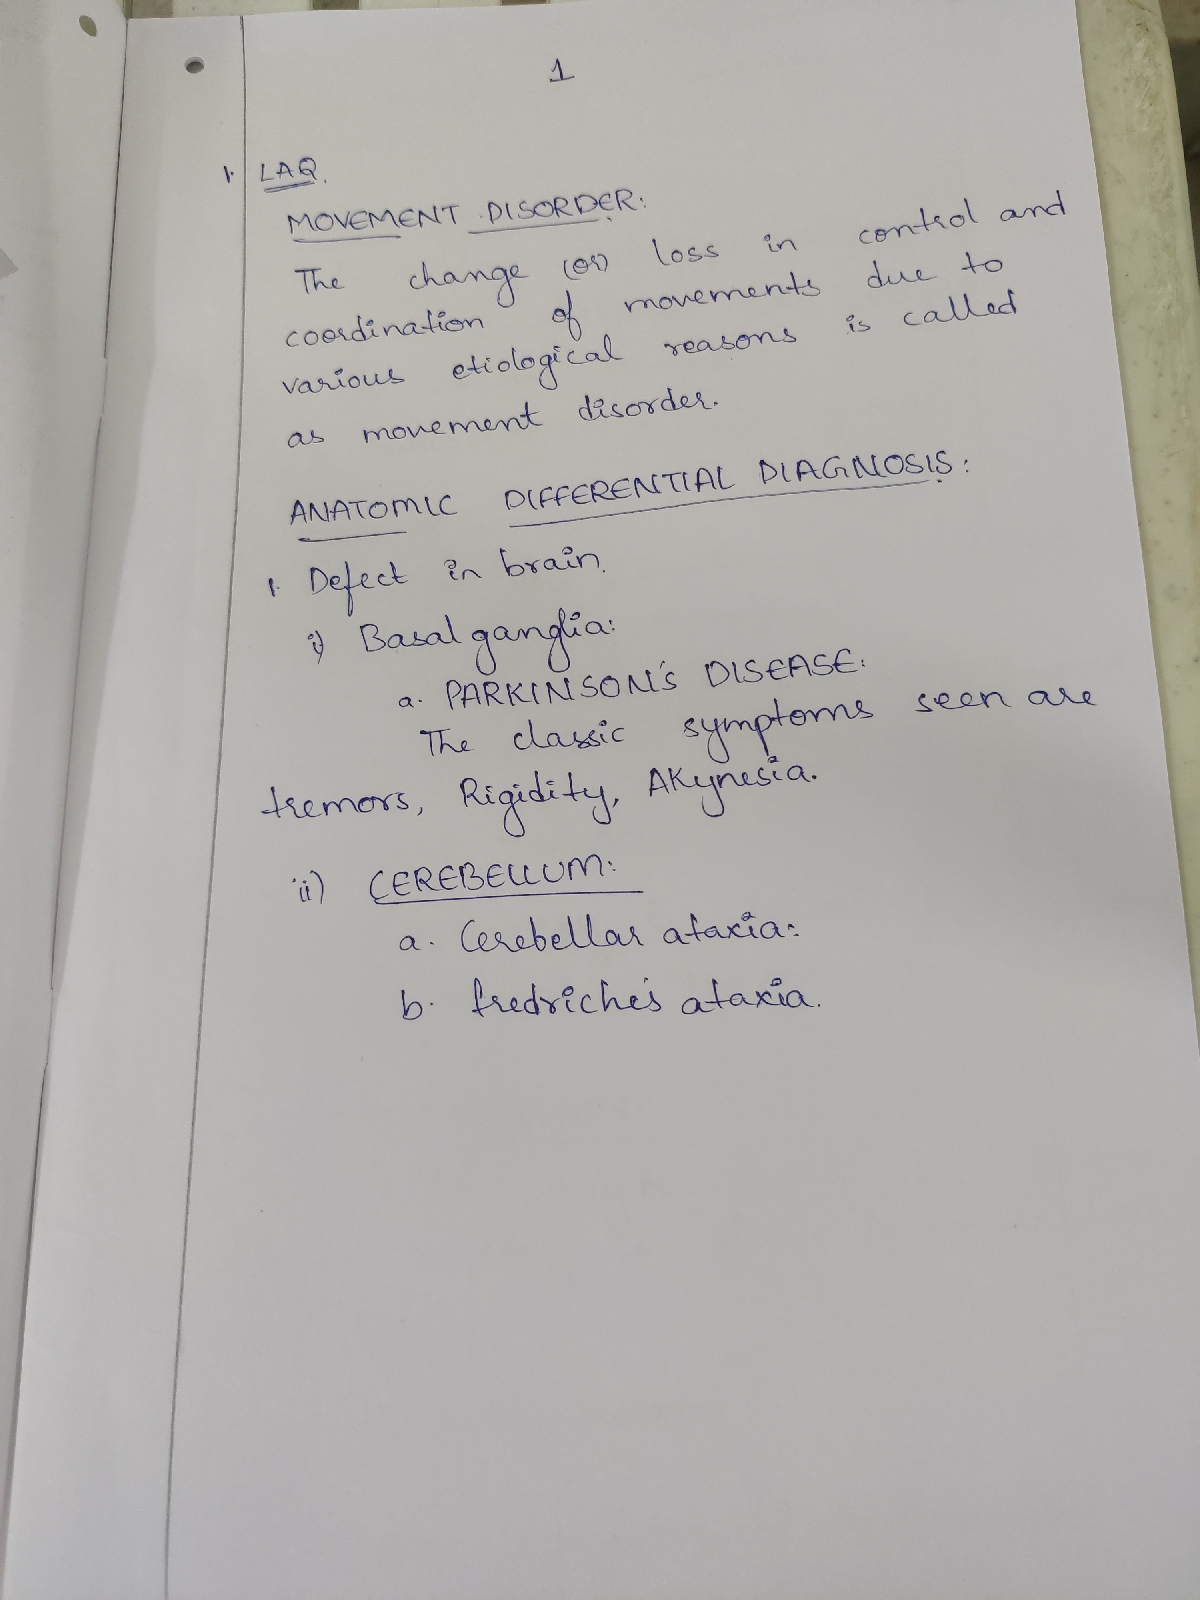 1
1. LAQ.
MOVEMENT DISORDER:
The change (or) loss in control and
coordination of movements due to
various etiological reasons is called
as movement disorder.
ANATOMIC DIFFERENTIAL DIAGNOSIS:
1. Defect in brain.
i) Basal ganglia:
a. PARKINSON'S DISEASE:
The classic symptoms seen are
tremors, Rigidity, AKynesia.
ii) CEREBELLUM:
a. Cerebellar ataxia:
b. fredriche's ataxia.